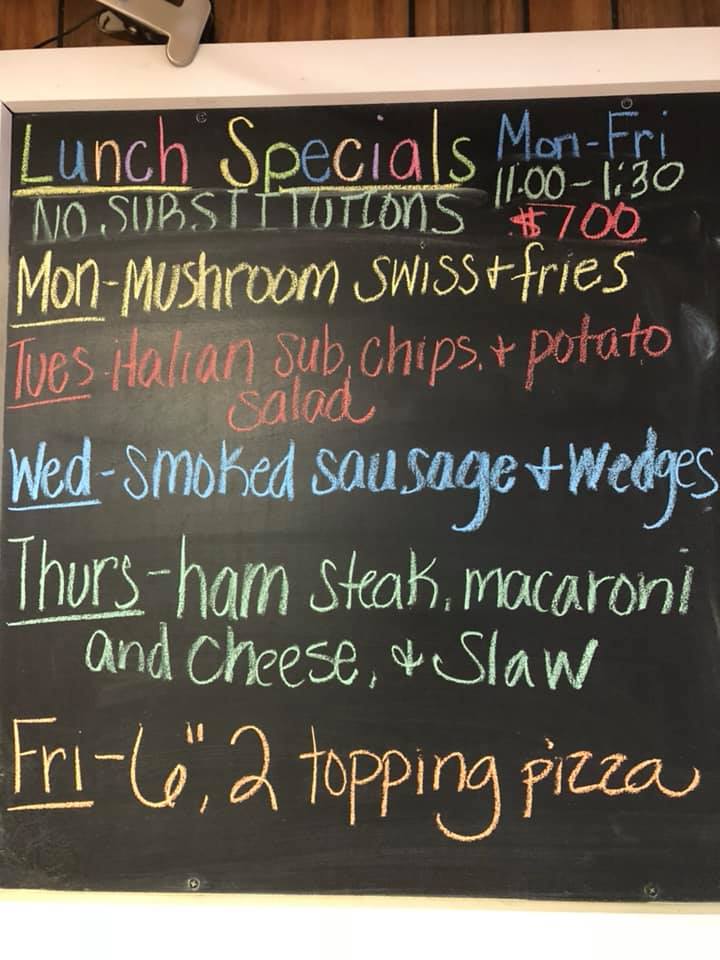 Lunch Specials Mon-Fri
11:00-1:30
NO SUBSTITUTIONS $700
Mon-Mushroom Swiss + fries
Tues-italian sub, chips, + potato
salad
Wed-smoked sausage + wedges
Thurs-ham steak, macaroni
and cheese, & Slaw
Fri-6", 2 topping pizza